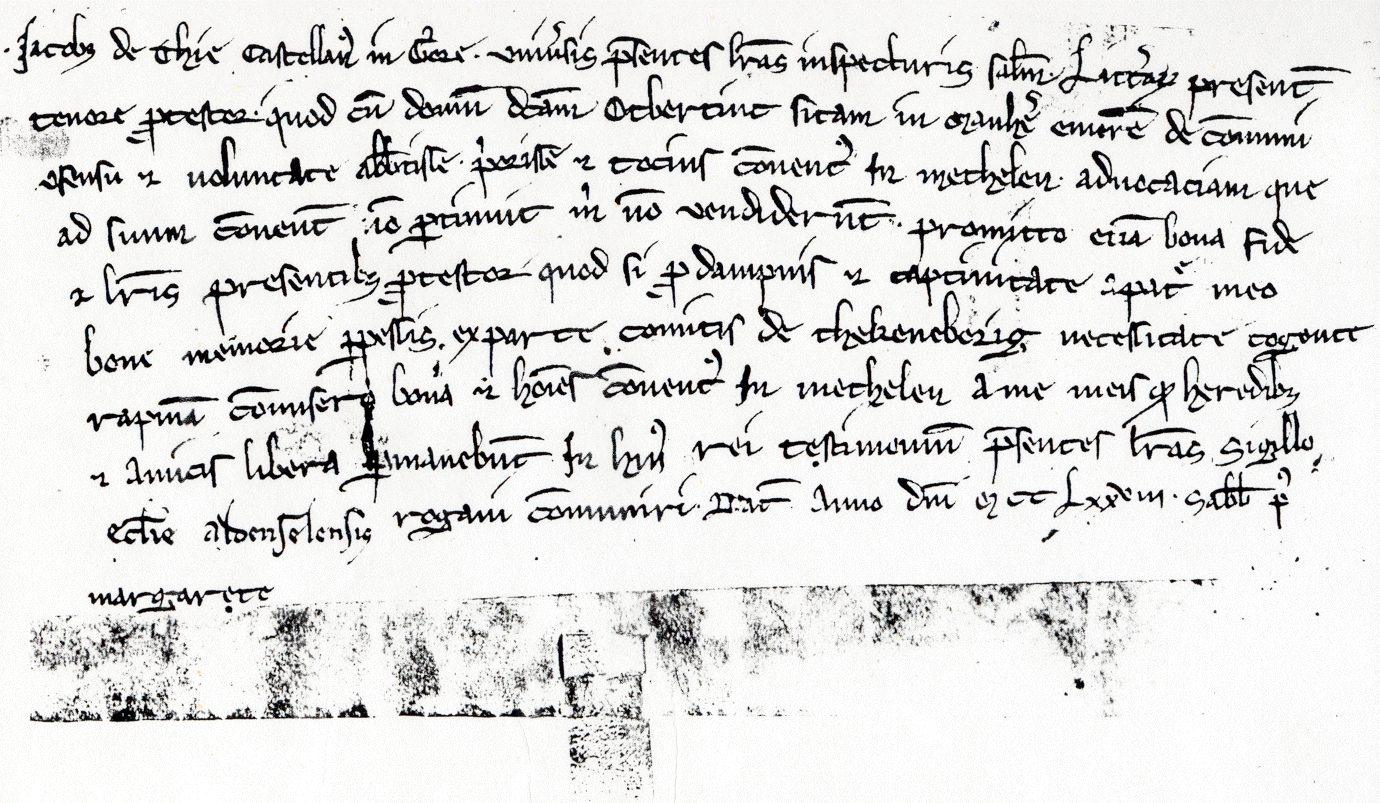 Jacob9 de Thie Castellan9 in Gore. univ'sis p̄sentes lr̄as inspecturis sal̄m. Litt'ar presentī
tenore ꝓtestor quod cū domū dc̄am Otbertinc sitam in emerūt de cōmuni
9sensu ⁊ voluntate abb̄tisse p'orisse ⁊ tocius cōvent9 In methelen advocaciam que
ad suum cōvent̄ nō ꝑtinuit m' nō vendiderūt. promitto etiā bona fide
⁊ lr̄is presentib9 ꝓtestor quod si ꝓ dampnis ⁊ captivitate a pat'e meo
bone memorie ꝑpessis. ex parte comitis de thekeneborig necessitate cogente
rapinā cōmisero bona ⁊ hoīes cōvent9 In methelen a me meisq3 heredib9
⁊ amicis libera ꝑmanebūt In hui9 rei testimonium p̄sentes lr̄as sigillo
eccl̄ie aldenselensis rogavi cōmuniri. Dat̄ Anno dn̄i m cc Lxxviii. Sabb̄ p9
margarete